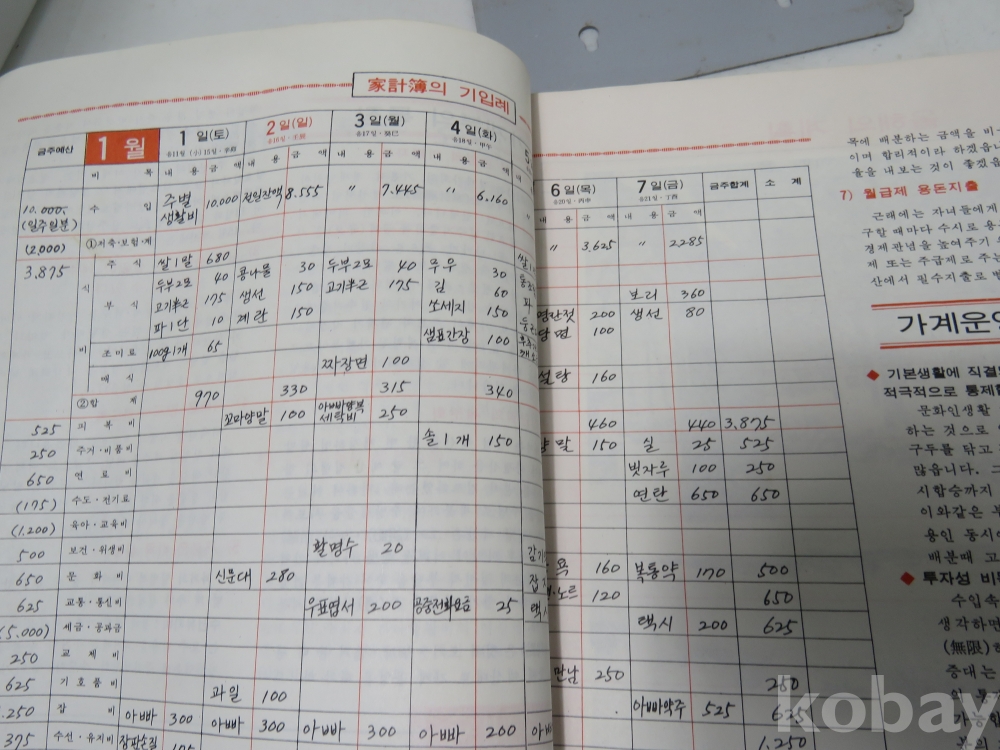 家計簿의 기입례
금주예산 1월 1일(토) 2일(일) 3일(월) 4일(화)
비 목 내 용 금 액 내 용 금 액 내 용 금 액
10,000 수 입 주별 생활비 10,000 전일잔액 8.555 〃 7.445 〃 6.160
(일주일분)
(2,000) ①저축·보험·계
3.875 주 식 쌀1말 680
식 두부2모 40 콩나물 30 두부2모 40 무우 30
부 식 고기半근 175 생선 150 고기半근 175 김 60
파1단 10 계란 150 쏘세지 150
비 조미료 100g1개 65 샘표간장 100
외식 짜장면 100
②합 계 970 330 315 340
525 피복비 꼬마양말 100 아빠양복 세탁비 250
250 주거·비품비 솔1개 150
650 연료비
(175) 수도·전기료
(1.200) 육아·교육비
500 보건·위생비 활명수 20
650 문화비 신문대 280
625 교통·통신비 우표엽서 200 공중전화요금 25
(5.000) 세금·공과금
250 교제비
625 기호품비 과일 100
.250 잡 비 아빠 300 아빠 300 아빠 300 아빠 200 아빠
375 수선·유지비 장판손질
6일(목) 7일(금) 금주합계 소 계
내 용 금 액 내 용 금 액
〃 3.625 〃 2285
보리 360
명란젓 200 생선 80
당면 100
설탕 160
460 440 3.875
양말 150 실 25 525
빗자루 100 250
연탄 650 650
160 복통약 170 500
120 650
택시 200 625
만남 250
250
아빠약주 525 625
1.250
목에 배분하는 금액을 비
이며 합리적이라 하겠읍니
율을 내보는 것이 좋겠읍
7) 월급제 용돈지출
근래에는 자녀들에게
구할 때마다 수시로 용
경제관념을 높여주기
제 또는 주급제로 주는
산에서 필수지출로
가계운영
◆ 기본생활에 직결
적극적으로 통제
문화인생활
하는 것으로
구두를 닦고
많읍니다. 그
시합승까지
이와같은
용인 동시에
배분때 고
◆ 투자성 비
수입속
생각하면
(無限)
증대는
kobay